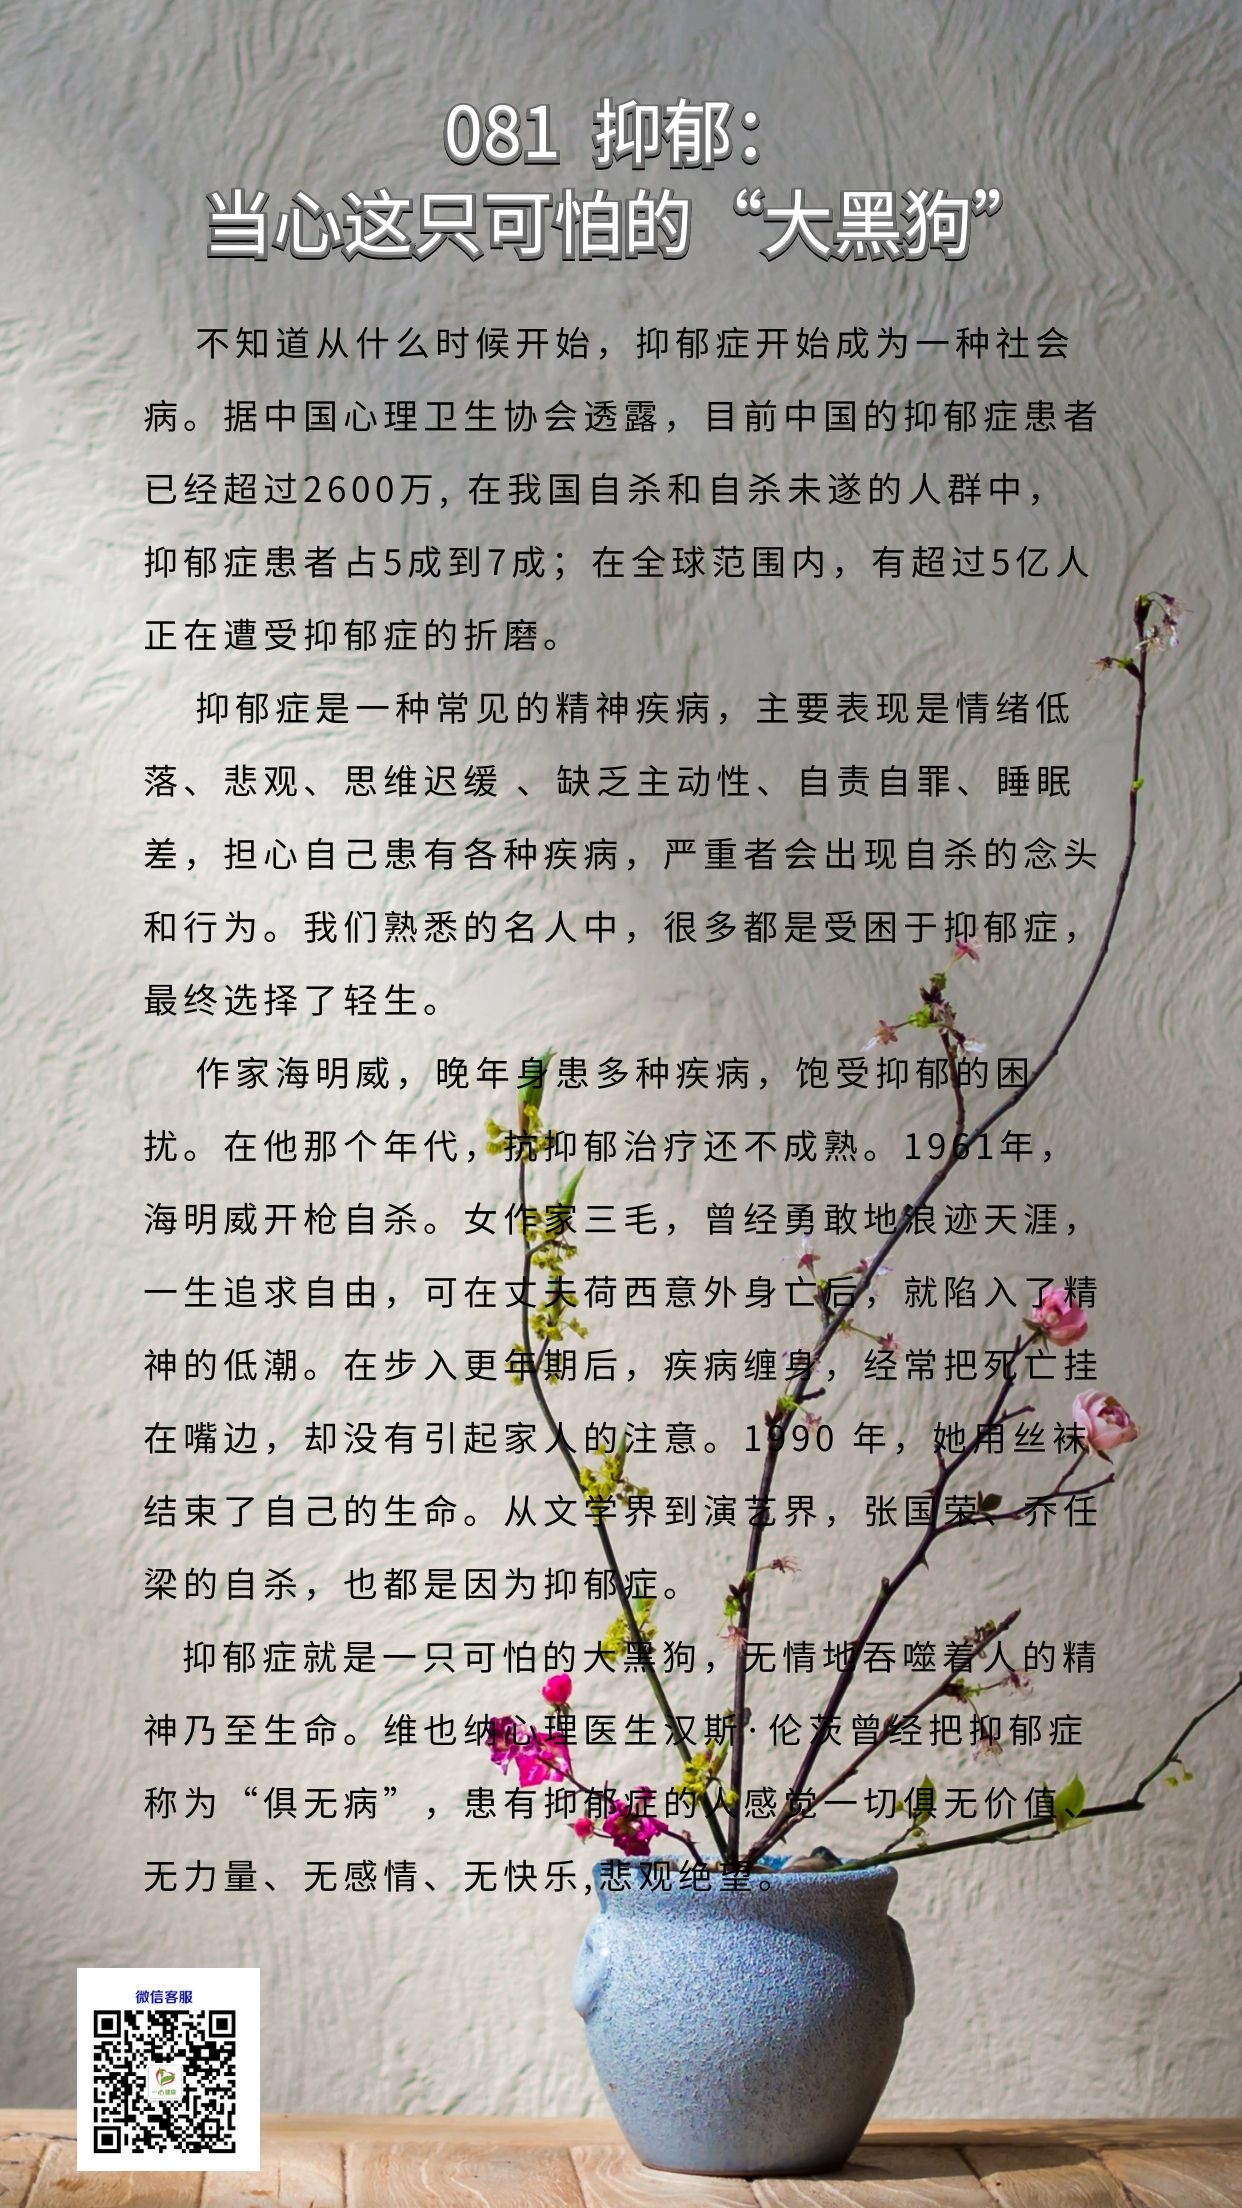 081 抑郁：
当心这只可怕的“大黑狗”
不知道从什么时候开始，抑郁症开始成为一种社会
病。据中国心理卫生协会透露，目前中国的抑郁症患者
已经超过2600万, 在我国自杀和自杀未遂的人群中，
抑郁症患者占5成到7成；在全球范围内，有超过5亿人
正在遭受抑郁症的折磨。
抑郁症是一种常见的精神疾病，主要表现是情绪低
落、悲观、思维迟缓 、缺乏主动性、自责自罪、睡眠
差，担心自己患有各种疾病，严重者会出现自杀的念头
和行为。我们熟悉的名人中，很多都是受困于抑郁症，
最终选择了轻生。
作家海明威，晚年身患多种疾病，饱受抑郁的困
扰。在他那个年代，抗抑郁治疗还不成熟。1961年，
海明威开枪自杀。女作家三毛，曾经勇敢地浪迹天涯，
一生追求自由，可在丈夫荷西意外身亡后，就陷入了精
神的低潮。在步入更年期后，疾病缠身，经常把死亡挂
在嘴边，却没有引起家人的注意。1990 年，她用丝袜
结束了自己的生命。从文学界到演艺界，张国荣、乔任
梁的自杀，也都是因为抑郁症。
抑郁症就是一只可怕的大黑狗，无情地吞噬着人的精
神乃至生命。维也纳心理医生汉斯·伦茨曾经把抑郁症
称为“俱无病”，患有抑郁症的人感觉一切俱无价值、
无力量、无感情、无快乐,悲观绝望。
微信客服
一心健康